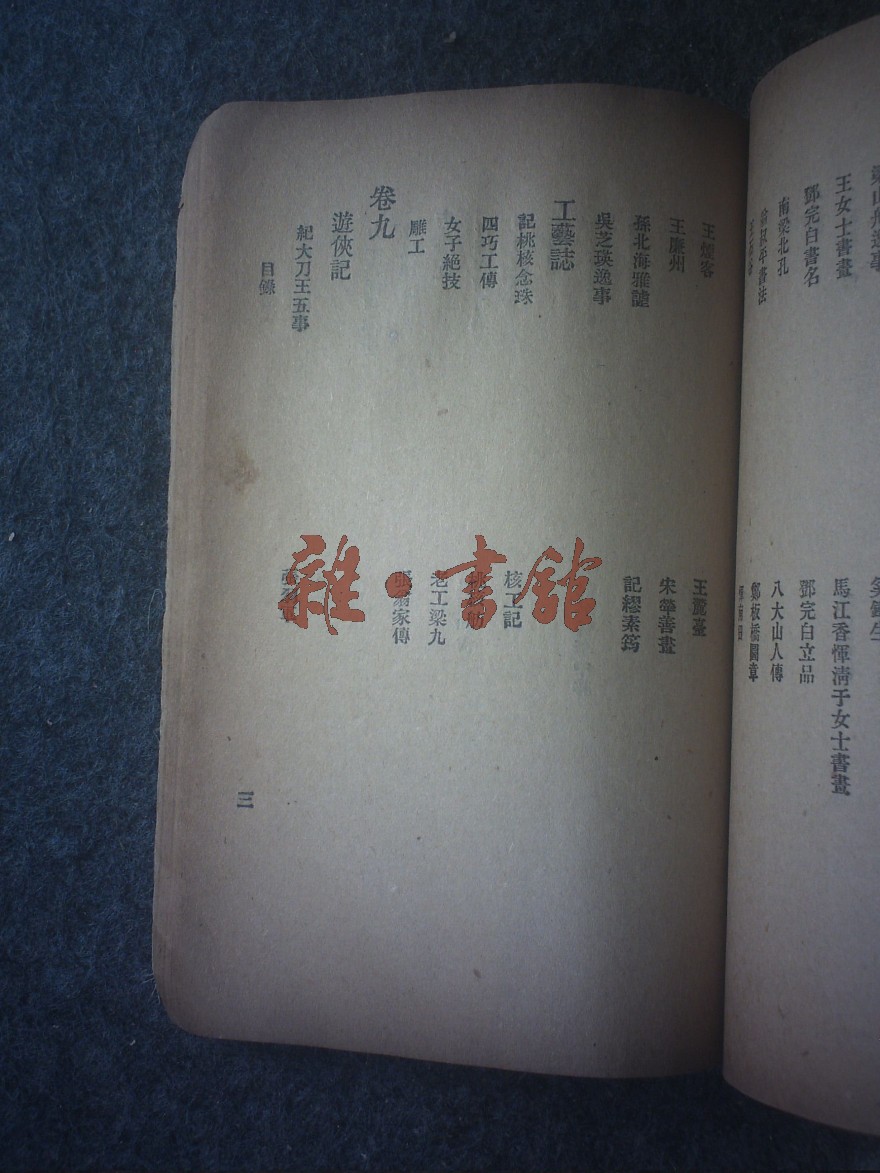 王女士書畫
鄧完白書名
南梁北孔
馬江香惲清于女士書畫
鄧完白立品
八大山人傳
鄭板橋圖章
王煙客
王廉州
孫北海雅謔
吳芝瑛逸事
宋犖善畫
記繆素筠
工藝誌
記桃核念珠
核工記
四巧工傳
女子絕技
老工梁九
雕工
家傳
卷九
遊俠記
紀大刀王五事
目錄
三
雜·書館